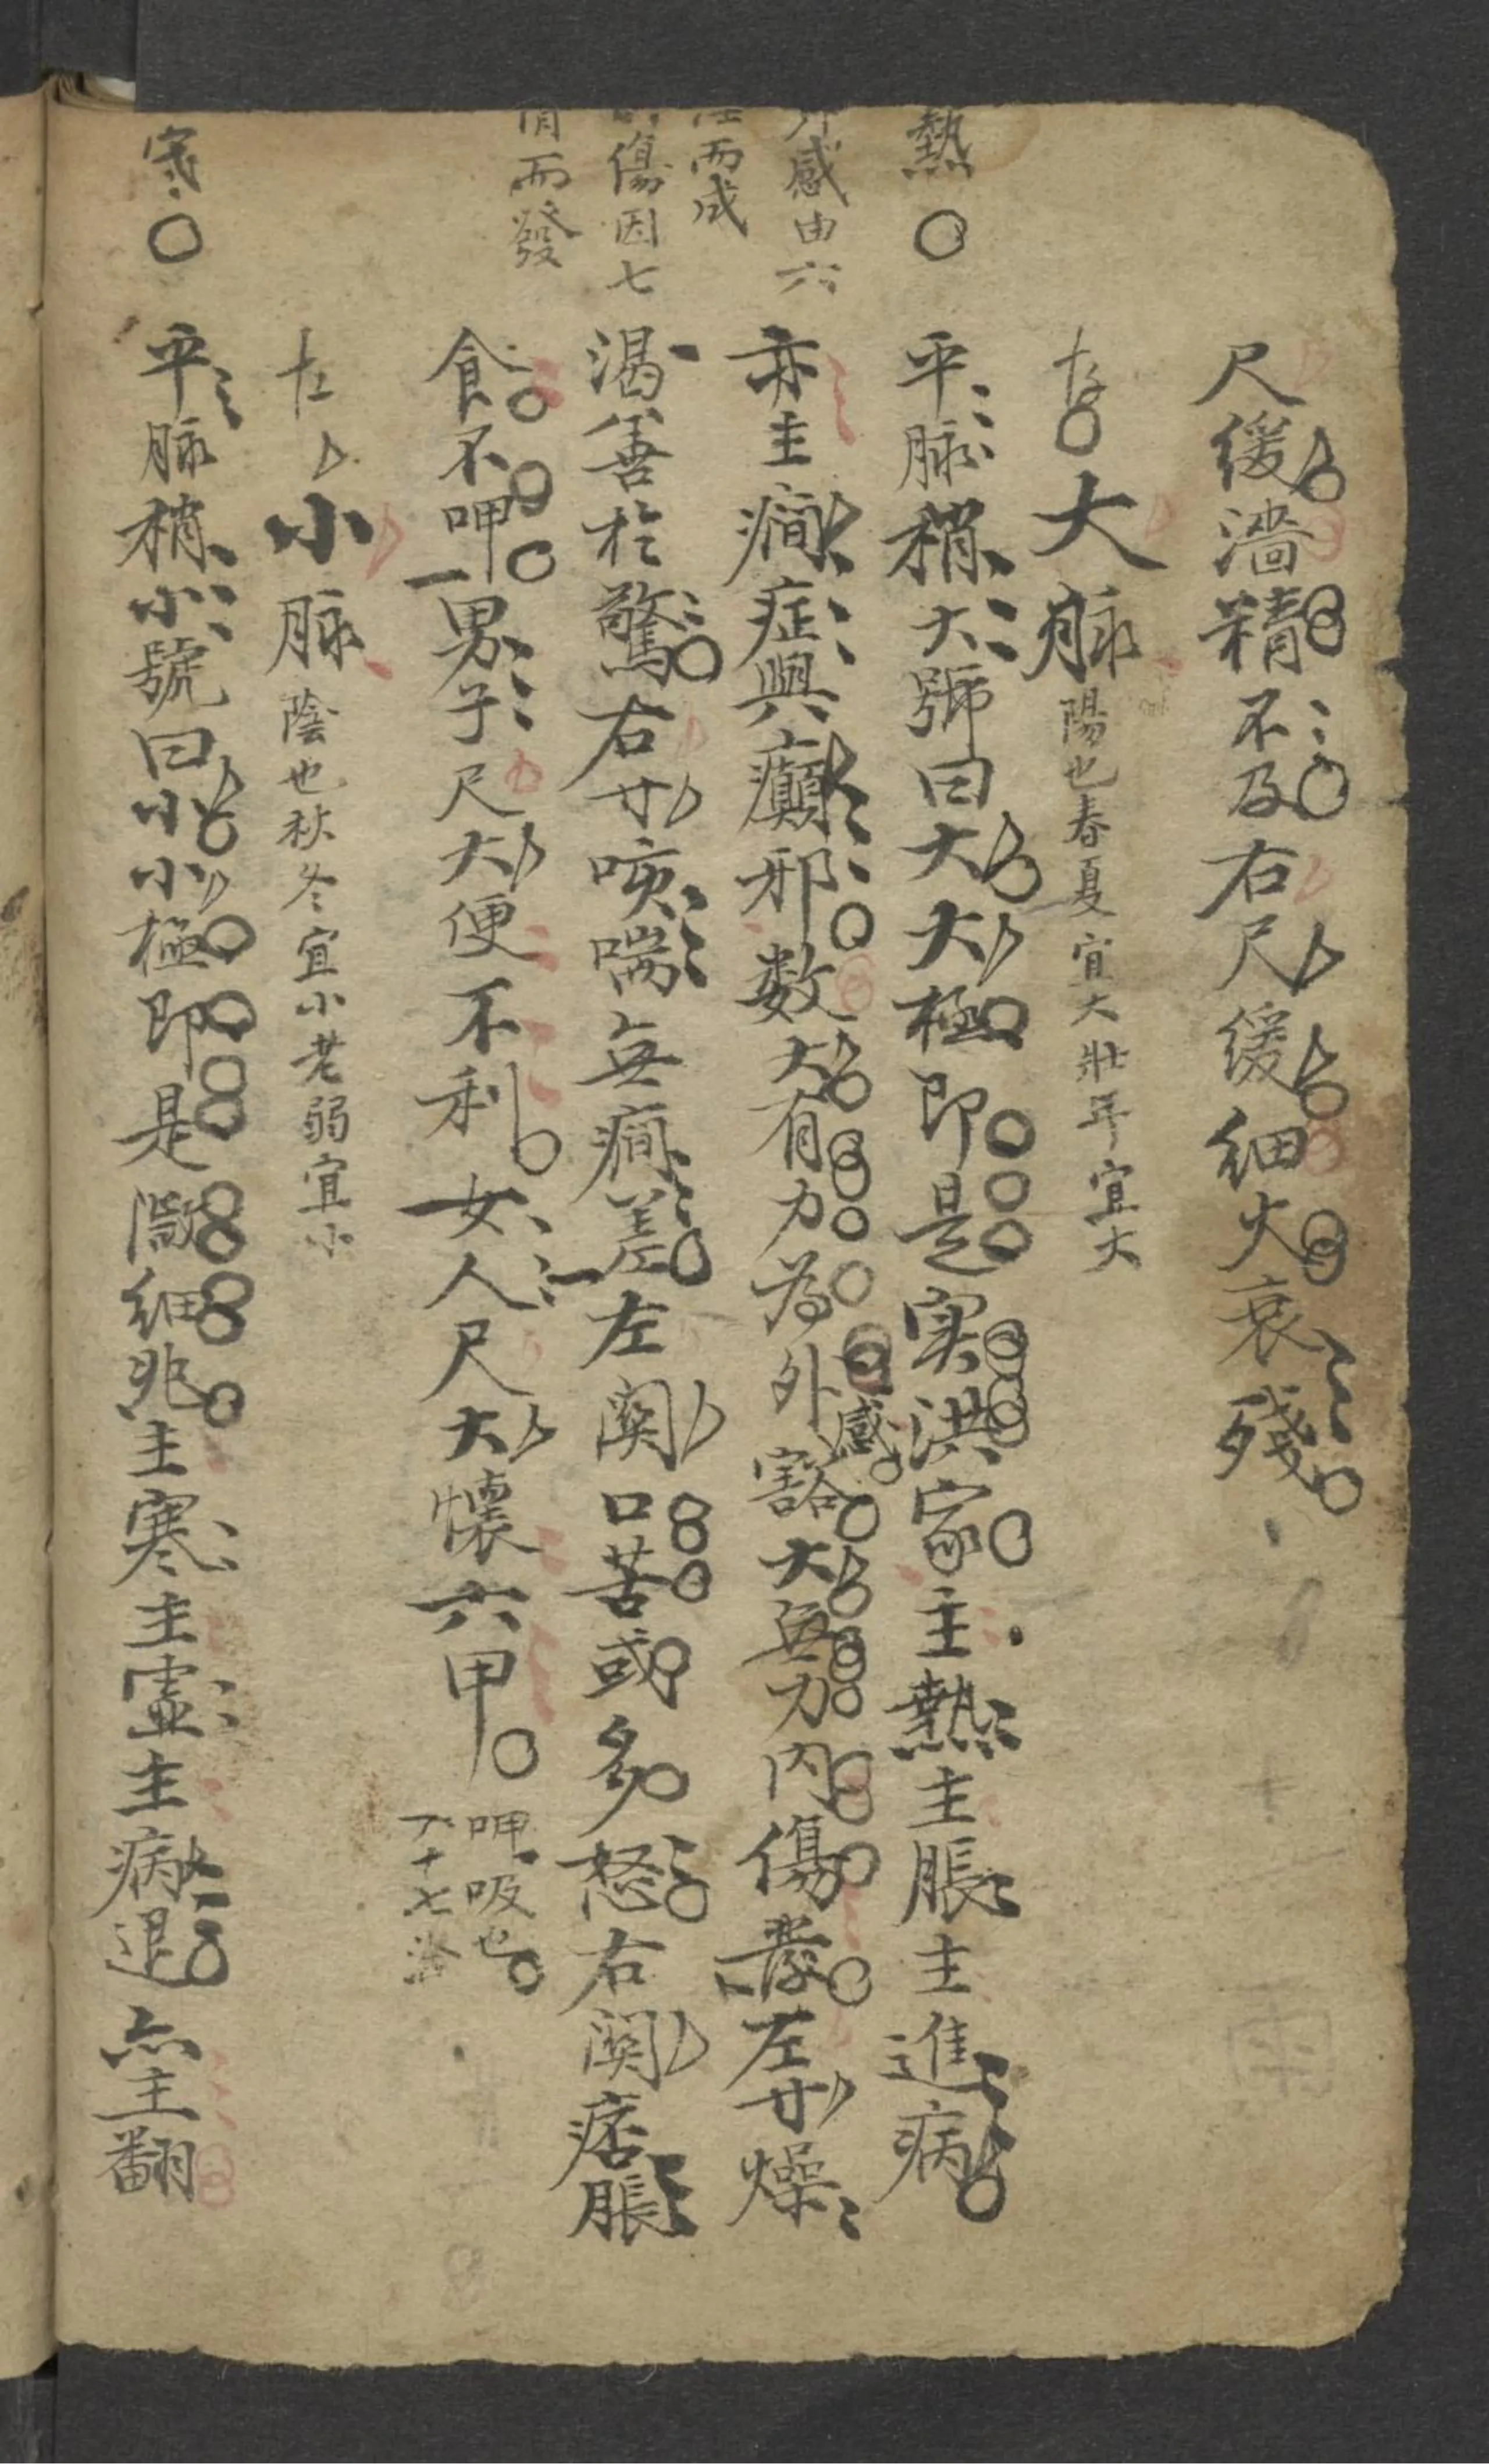 尺緩濇精不及右尺緩細火衰殘
大脉陽也春夏宜大壯年宜大
熱
平脉稍大號曰大大極即是实洪家主熱主脹主進病
感由六
而成
亦主癎症與癲邪数大有力為外感豁大無力内傷發左寸燥
傷因七
而發
渴善於驚右寸咳喘無癎差左関口苦或多怒右関痞脹
食不呷男子尺大便不利女人尺大懷六甲
呷吸也
十七
小脉陰也秋冬宜小老弱宜小
寒
平脉稍小號曰小小極即是微細兆主寒主虚主病退亦主翻